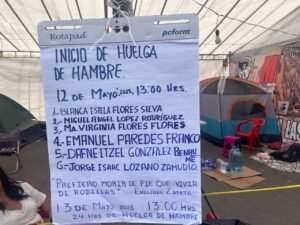 Rotapad
pcform
INICIO DE HUELGA
DE HAMBRE.
12 DE MAYO, 2025, 13:00 HRS.
1.- BLANCA ISELA FLORES SILVA
2.- MIGUEL ANGEL LOPEZ RODRÍGUEZ
3.- Ma. VIRGINIA FLORES FLORES
4.- EMANUEL PAREDES FRANCO
5.- DAFNE ITZEL GONZÁLEZ BENHUME
6.- JORGE ISAAC LOZANO ZAMUDIO
PREFIERO MORIR DE PIE QUE VIVIR
DE RODILLAS" EMILIANO ZAPATA
13 DE MAYO 2025 13:00 HRS
24 HRS DE HUELGA DE HAMBRE